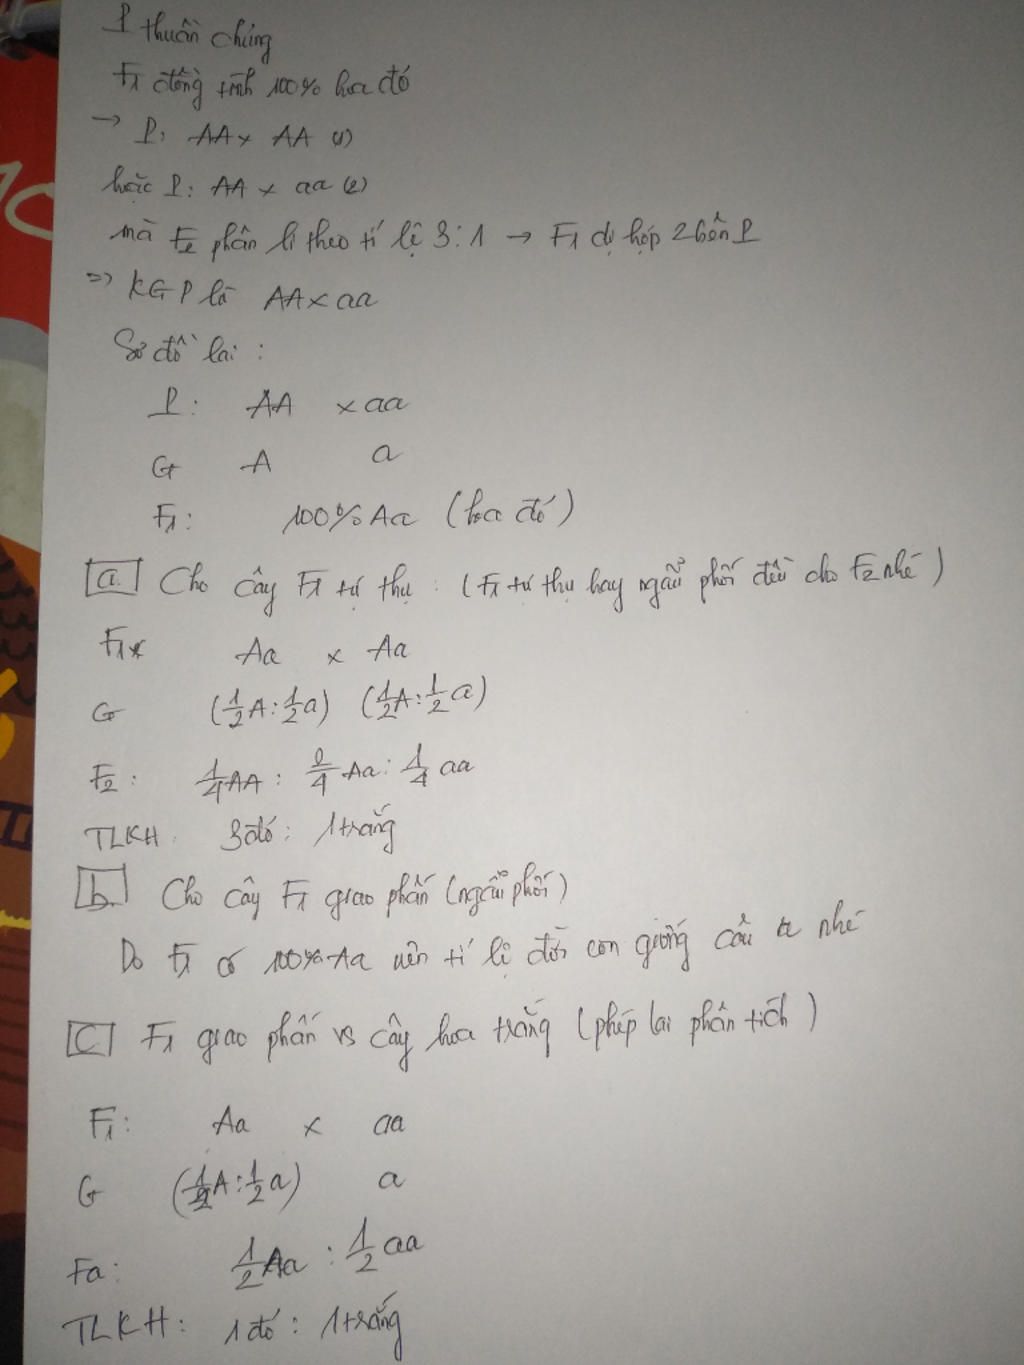 P thuần chủng
F1 đồng tính 100% hoa đỏ
→ P: AA x AA (1)
hoặc P: AA x aa (2)
mà F2 phân li theo tỉ lệ 3:1 → F1 dị hợp 2 bên P
=> KG P là AA x aa
Sơ đồ lai:
P: AA x aa
G A a
F1: 100% Aa (hoa đỏ)
a. Cho cây F1 tự thụ: (F1 tự thụ hay ngẫu phối đều cho F2 nhé)
F1x Aa x Aa
G (1/2A:1/2a) (1/2A:1/2a)
F2: 1/4AA: 2/4Aa: 1/4aa
TLKH. 3đỏ: 1trắng
b. Cho cây F1 giao phấn (ngẫu phối)
Do F1 có 100% Aa nên tỉ lệ đời con giống câu a nhé
c F1 giao phấn vs cây hoa trắng (phép lai phân tích)
F1: Aa x aa
G (1/2A:1/2a) a
Fa: 1/2Aa : 1/2aa
TLKH: 1đỏ: 1trắng